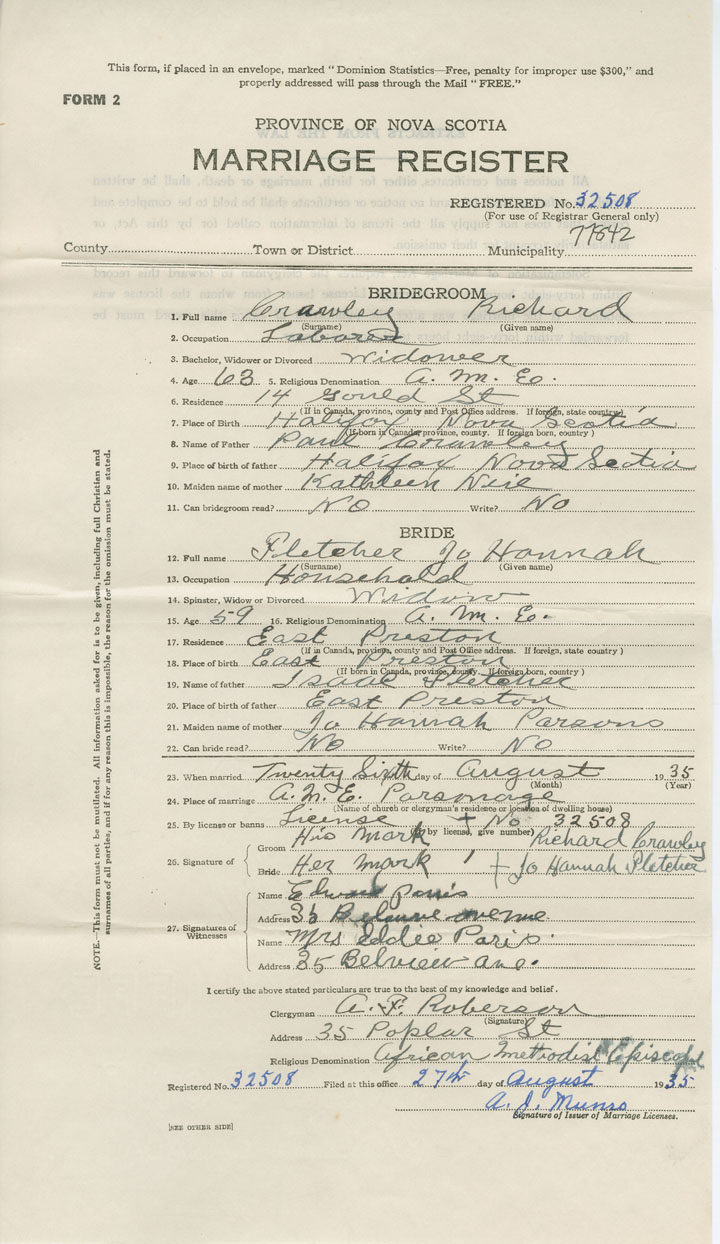 This form, if placed in an envelope, marked "Dominion Statistics—Free, penalty for improper use $300," and
properly addressed will pass through the Mail "FREE."
FORM 2
PROVINCE OF NOVA SCOTIA
MARRIAGE REGISTER
REGISTERED No. 32508
(For use of Registrar General only)
77642
County Town or District Municipality
BRIDEGROOM
1. Full name Crawley Richard
(Surname) (Given name)
2. Occupation Laborer
3. Bachelor, Widower or Divorced Widower
4. Age 63 5. Religious Denomination A. M. E.
6. Residence 14 Gould St
(If in Canada, province, county and Post Office address. If foreign, state country)
7. Place of Birth Halifax Nova Scotia
(If born in Canada, province, county. If foreign born, country)
8. Name of Father Paul Crawley
9. Place of birth of father Halifax Nova Scotia
10. Maiden name of mother Kathleen
11. Can bridegroom read? No Write? No
BRIDE
12. Full name Fletcher Jo Hannah
(Surname) (Given name)
13. Occupation Household
14. Spinster, Widow or Divorced Widow
15. Age 59 16. Religious Denomination A. M. E.
17. Residence East Preston
(If in Canada, province, county and Post Office address. If foreign, state country)
18. Place of birth East Preston
(If born in Canada, province, county. If foreign born, country)
19. Name of father Isaac Fletcher
20. Place of birth of father East Preston
21. Maiden name of mother Jo Hannah Parsons
22. Can bride read? No Write? No
23. When married Twenty Sixth day of August 1935
(Month) (Year)
24. Place of marriage A. M. E. Parsonage
(Name of church or clergyman's residence or location of dwelling house)
25. By license or banns License + No 32508
(If by license, give number)
26. Signature of
Groom His Mark Richard Crawley
Bride Her mark + Jo Hannah Fletcher
27. Signatures of Witnesses
Name Edward Paris
Address 35 avenue
Name Mrs Eddie Paris.
Address 35 Belview Ave.
I certify the above stated particulars are true to the best of my knowledge and belief.
Clergyman A. F. Roberson
(Signature)
Address 35 Poplar St
Religious Denomination African Methodist Episcopal
Registered No. 32508 Filed at this office 27th day of August 1935
A. J. Munro
Signature of Issuer of Marriage Licenses.
[SEE OTHER SIDE]
NOTE.—This form must not be mutilated. All information asked for is to be given, including full Christian and
surnames of all parties, and if for any reason this is impossible, the reason for the omission must be stated.